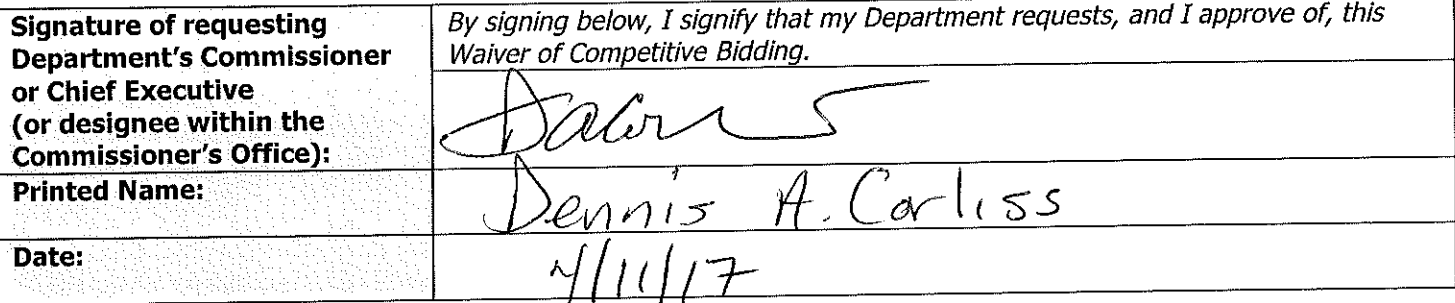 Signature of requesting
Department's Commissioner
or Chief Executive
(or designee within the
Commissioner's Office):
By signing below, I signify that my Department requests, and I approve of, this
Waiver of Competitive Bidding.
Printed Name:
Dennis A. Corliss
Date:
4/11/17